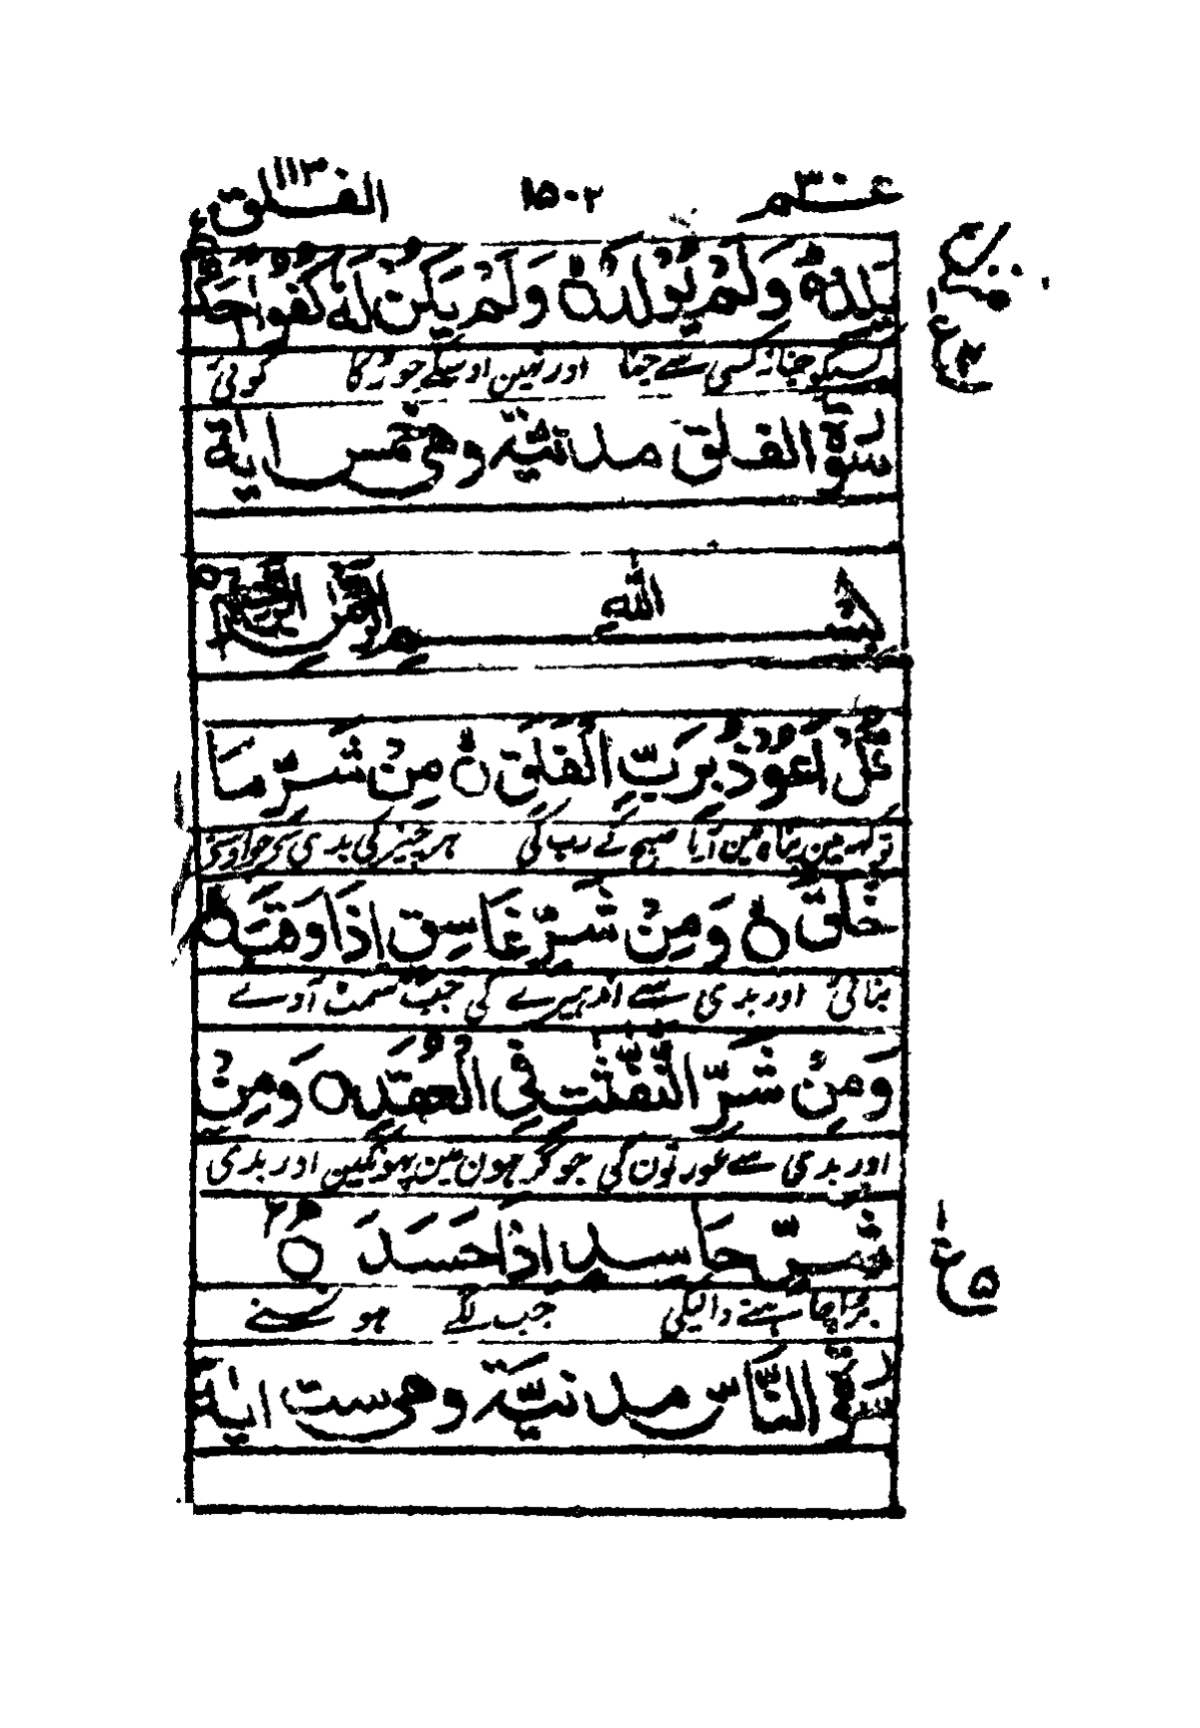 عـم ٣٠ ١٥٠٢ الفلق ١١٣
يَلِدْ ۙ وَلَمْ يُوْلَدْ ۙ وَلَمْ يَكُنْ لَّهٗ كُفُوًا اَحَدٌ
کسیکو جنا نہ کسی سے جنا اور نہین اوسکے جوڑ کا کوئی
سورۃ الفلق مدنیّۃ وھی خمس اٰیۃ
بسم اللّٰہ الرحمٰن الرحیم
قُلْ اَعُوْذُ بِرَبِّ الْفَلَقِ ۙ مِنْ شَرِّ مَا
تو کہہ مین پناہ مین آیا صبح کے رب کی ہر چیز کی بدی سے جو اوسنے
خَلَقَ ۙ وَمِنْ شَرِّ غَاسِقٍ اِذَا وَقَبَ ۙ
بنائی اور بدی سے اندہیرے کی جب سمٹ آوے
وَمِنْ شَرِّ النَّفّٰثٰتِ فِی الْعُقَدِ ۙ وَمِنْ
اور بدی سے عورتون کی جو گرہون مین پہونکین اور بدی
شَرِّ حَاسِدٍ اِذَا حَسَدَ
برا چاہنے والیکی جب لگے ہونسنے
سورۃ النَّاس مدنیّۃ وھی ست اٰیۃ
ع
٥